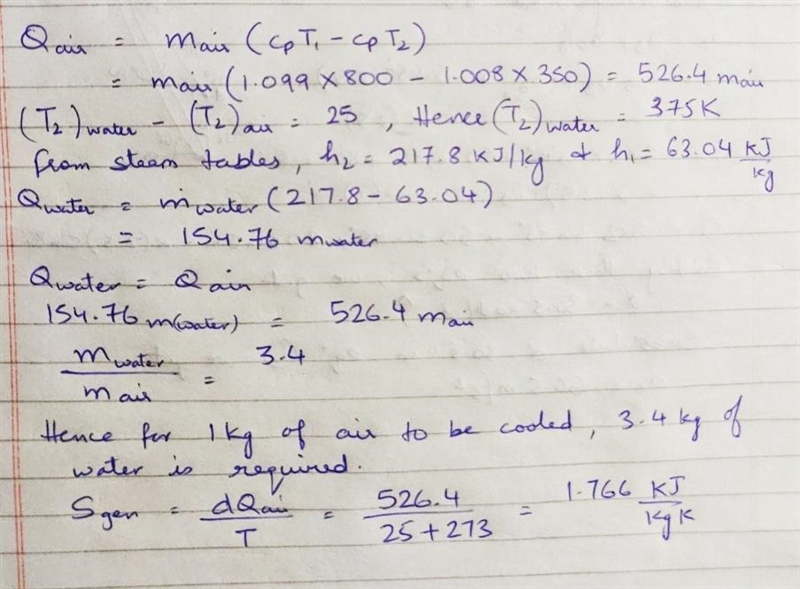 Qair = mair (cpT1 - cpT2)
= mair (1.099 × 800 - 1.008 × 350) = 526.4 mair
(T2)water - (T2)air = 25 , Hence (T2)water = 375K
From steam tables, h2 = 217.8 KJ/kg & h1 = 63.04 KJ/kg
Qwater = ṁwater (217.8 - 63.04)
= 154.76 mwater
Qwater = Qair
154.76 m(water) = 526.4 mair
mwater/mair = 3.4
Hence for 1kg of air to be cooled, 3.4 kg of
water is required.
Sgen = dQair/T = 526.4/25+273 = 1.766 KJ/KgK